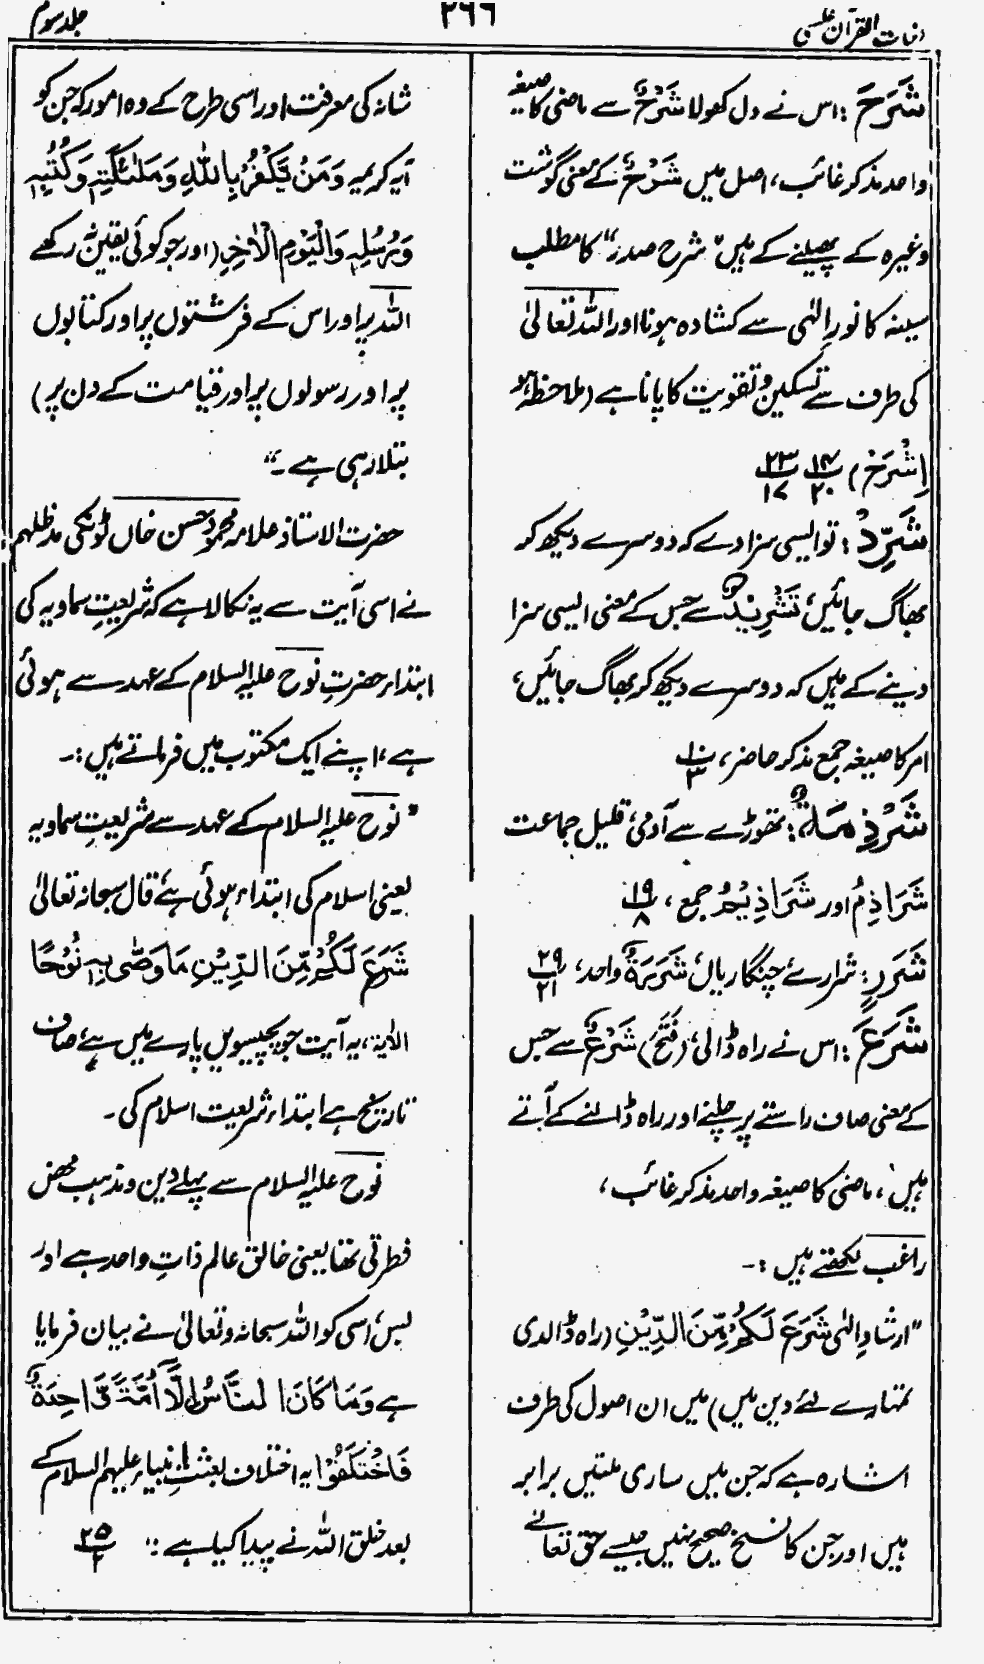 لغات القرآن
۲۶۶
جلد سوم
شَرَحَ : اس نے دل کھولا شَرْحٌ سے ماضی کا صیغہ
واحد مذکر غائب، اصل میں شَرْحٌ کے معنی گوشت
وغیرہ کے پھیلنے کے ہیں "شرح صدر" کا مطلب
سینہ کا نورِ الٰہی سے کشادہ ہونا اور اللہ تعالیٰ
کی طرف سے تسکین و تقویت کا پانا ہے (ملاحظہ ہو
اِشْرَحْ) ۱۴/۲۰ ۲۳/۱۷
شَرِّدْ : تو ایسی سزا دے کہ دوسرے دیکھ کر
بھاگ جائیں، تَشْرِیْدٌ سے جس کے معنی ایسی سزا
دینے کے ہیں کہ دوسرے دیکھ کر بھاگ جائیں،
امر کا صیغہ جمع مذکر حاضر، ۱۰/۳
شَرْذِمَةٌ : تھوڑے سے آدمی، قلیل جماعت
شَرَاذِمُ اور شَرَاذِیْمُ جمع، ۱۹/۸
شَرَرٍ : شرارے، چنگاریاں، شَرَرَةٌ واحد، ۲۹/۲۱
شَرَعَ : اس نے راہ ڈالی، (فَتَحَ) شَرْعٌ سے جس
کے معنی صاف راستے پر چلنے اور راہ ڈالنے کے آتے
ہیں، ماضی کا صیغہ واحد مذکر غائب،
راغب لکھتے ہیں :-
"ارشادِ الٰہی شَرَعَ لَكُمْ مِّنَ الدِّيْنِ (راہ ڈالدی
تمہارے لئے دین میں) میں ان اصول کی طرف
اشارہ ہے کہ جن میں ساری ملتیں برابر
ہیں اور جن کا نسخ صحیح نہیں جیسے حق تعالےٰ
شانہ کی معرفت اور اسی طرح کے وہ امور کہ جن کو
آیہ کریمہ وَمَنْ يَّكْفُرْ بِاللّٰهِ وَمَلٰئِكَتِهٖ وَكُتُبِهٖ
وَرُسُلِهٖ وَالْيَوْمِ الْاٰخِرِ (اور جو کوئی یقین نہ رکھے
اللہ پر اور اس کے فرشتوں پر اور کتابوں
پر اور رسولوں پر اور قیامت کے دن پر)
بتلا رہی ہے۔"
حضرت الاستاذ علامہ محمود حسن خاں ٹونکی مدظلہم
نے اسی آیت سے یہ نکالا ہے کہ شریعتِ سماویہ کی
ابتداء حضرت نوح علیہ السلام کے عہد سے ہوئی
ہے، اپنے ایک مکتوب میں فرماتے ہیں :-
"نوح علیہ السلام کے عہد سے شریعتِ سماویہ
یعنی اسلام کی ابتداء ہوئی ہے، قال سبحانہ تعالیٰ
شَرَعَ لَكُمْ مِّنَ الدِّيْنِ مَا وَصّٰى بِهٖ نُوْحًا
الآیة، یہ آیت جو پچیسویں پارے میں ہے، صاف
تاریخ ہے ابتداء شریعت اسلام کی۔
نوح علیہ السلام سے پہلے دین و مذہب محض
فطرتی تھا یعنی خالق عالم ذاتِ واحد ہے اور
بس، اسی کو اللہ سبحانہ وتعالیٰ نے بیان فرمایا
ہے وَمَا كَانَ النَّاسُ اِلَّا اُمَّةً وَّاحِدَةً
فَاخْتَلَفُوْا یہ اختلاف بعثتِ انبیاء علیہم السلام کے
بعد خلق اللہ نے پیدا کیا ہے :" ۲۵/۲